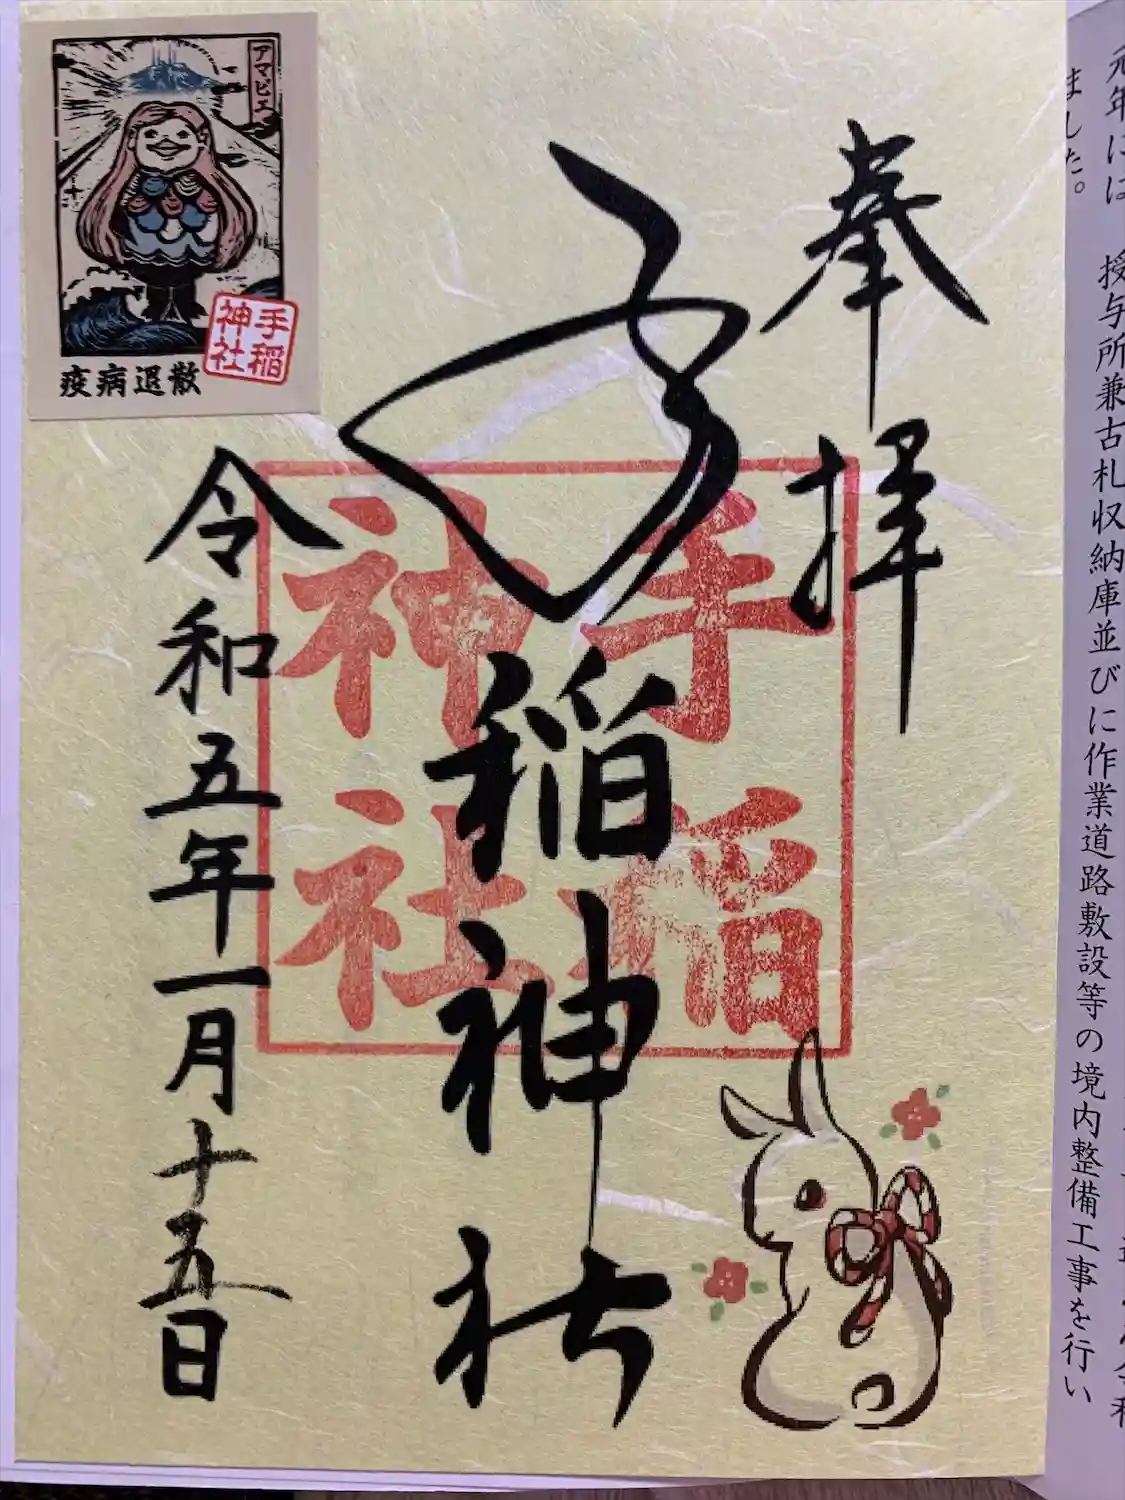 元年には 授与所兼古札収納庫並びに作業道路敷設等の境内整備工事を行い
ました。
奉拝
手稲神社
手稲
神社
令和五年一月十五日
アマビエ
手稲
神社
疫病退散